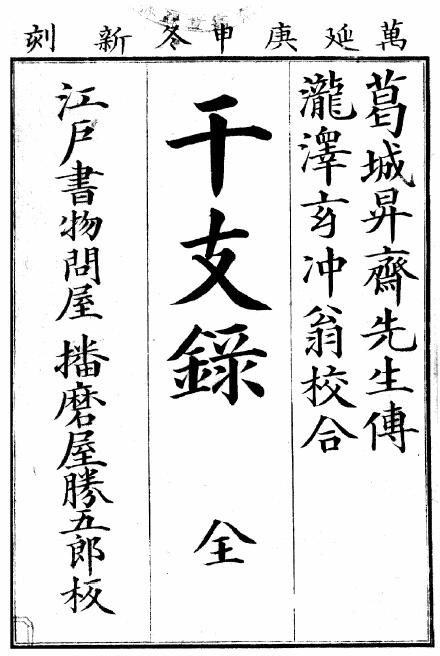 萬延庚申冬新刻
葛城昇齋先生傳
瀧澤玄冲翁校合
干支錄 全
江戶書物問屋 播磨屋勝五郎板